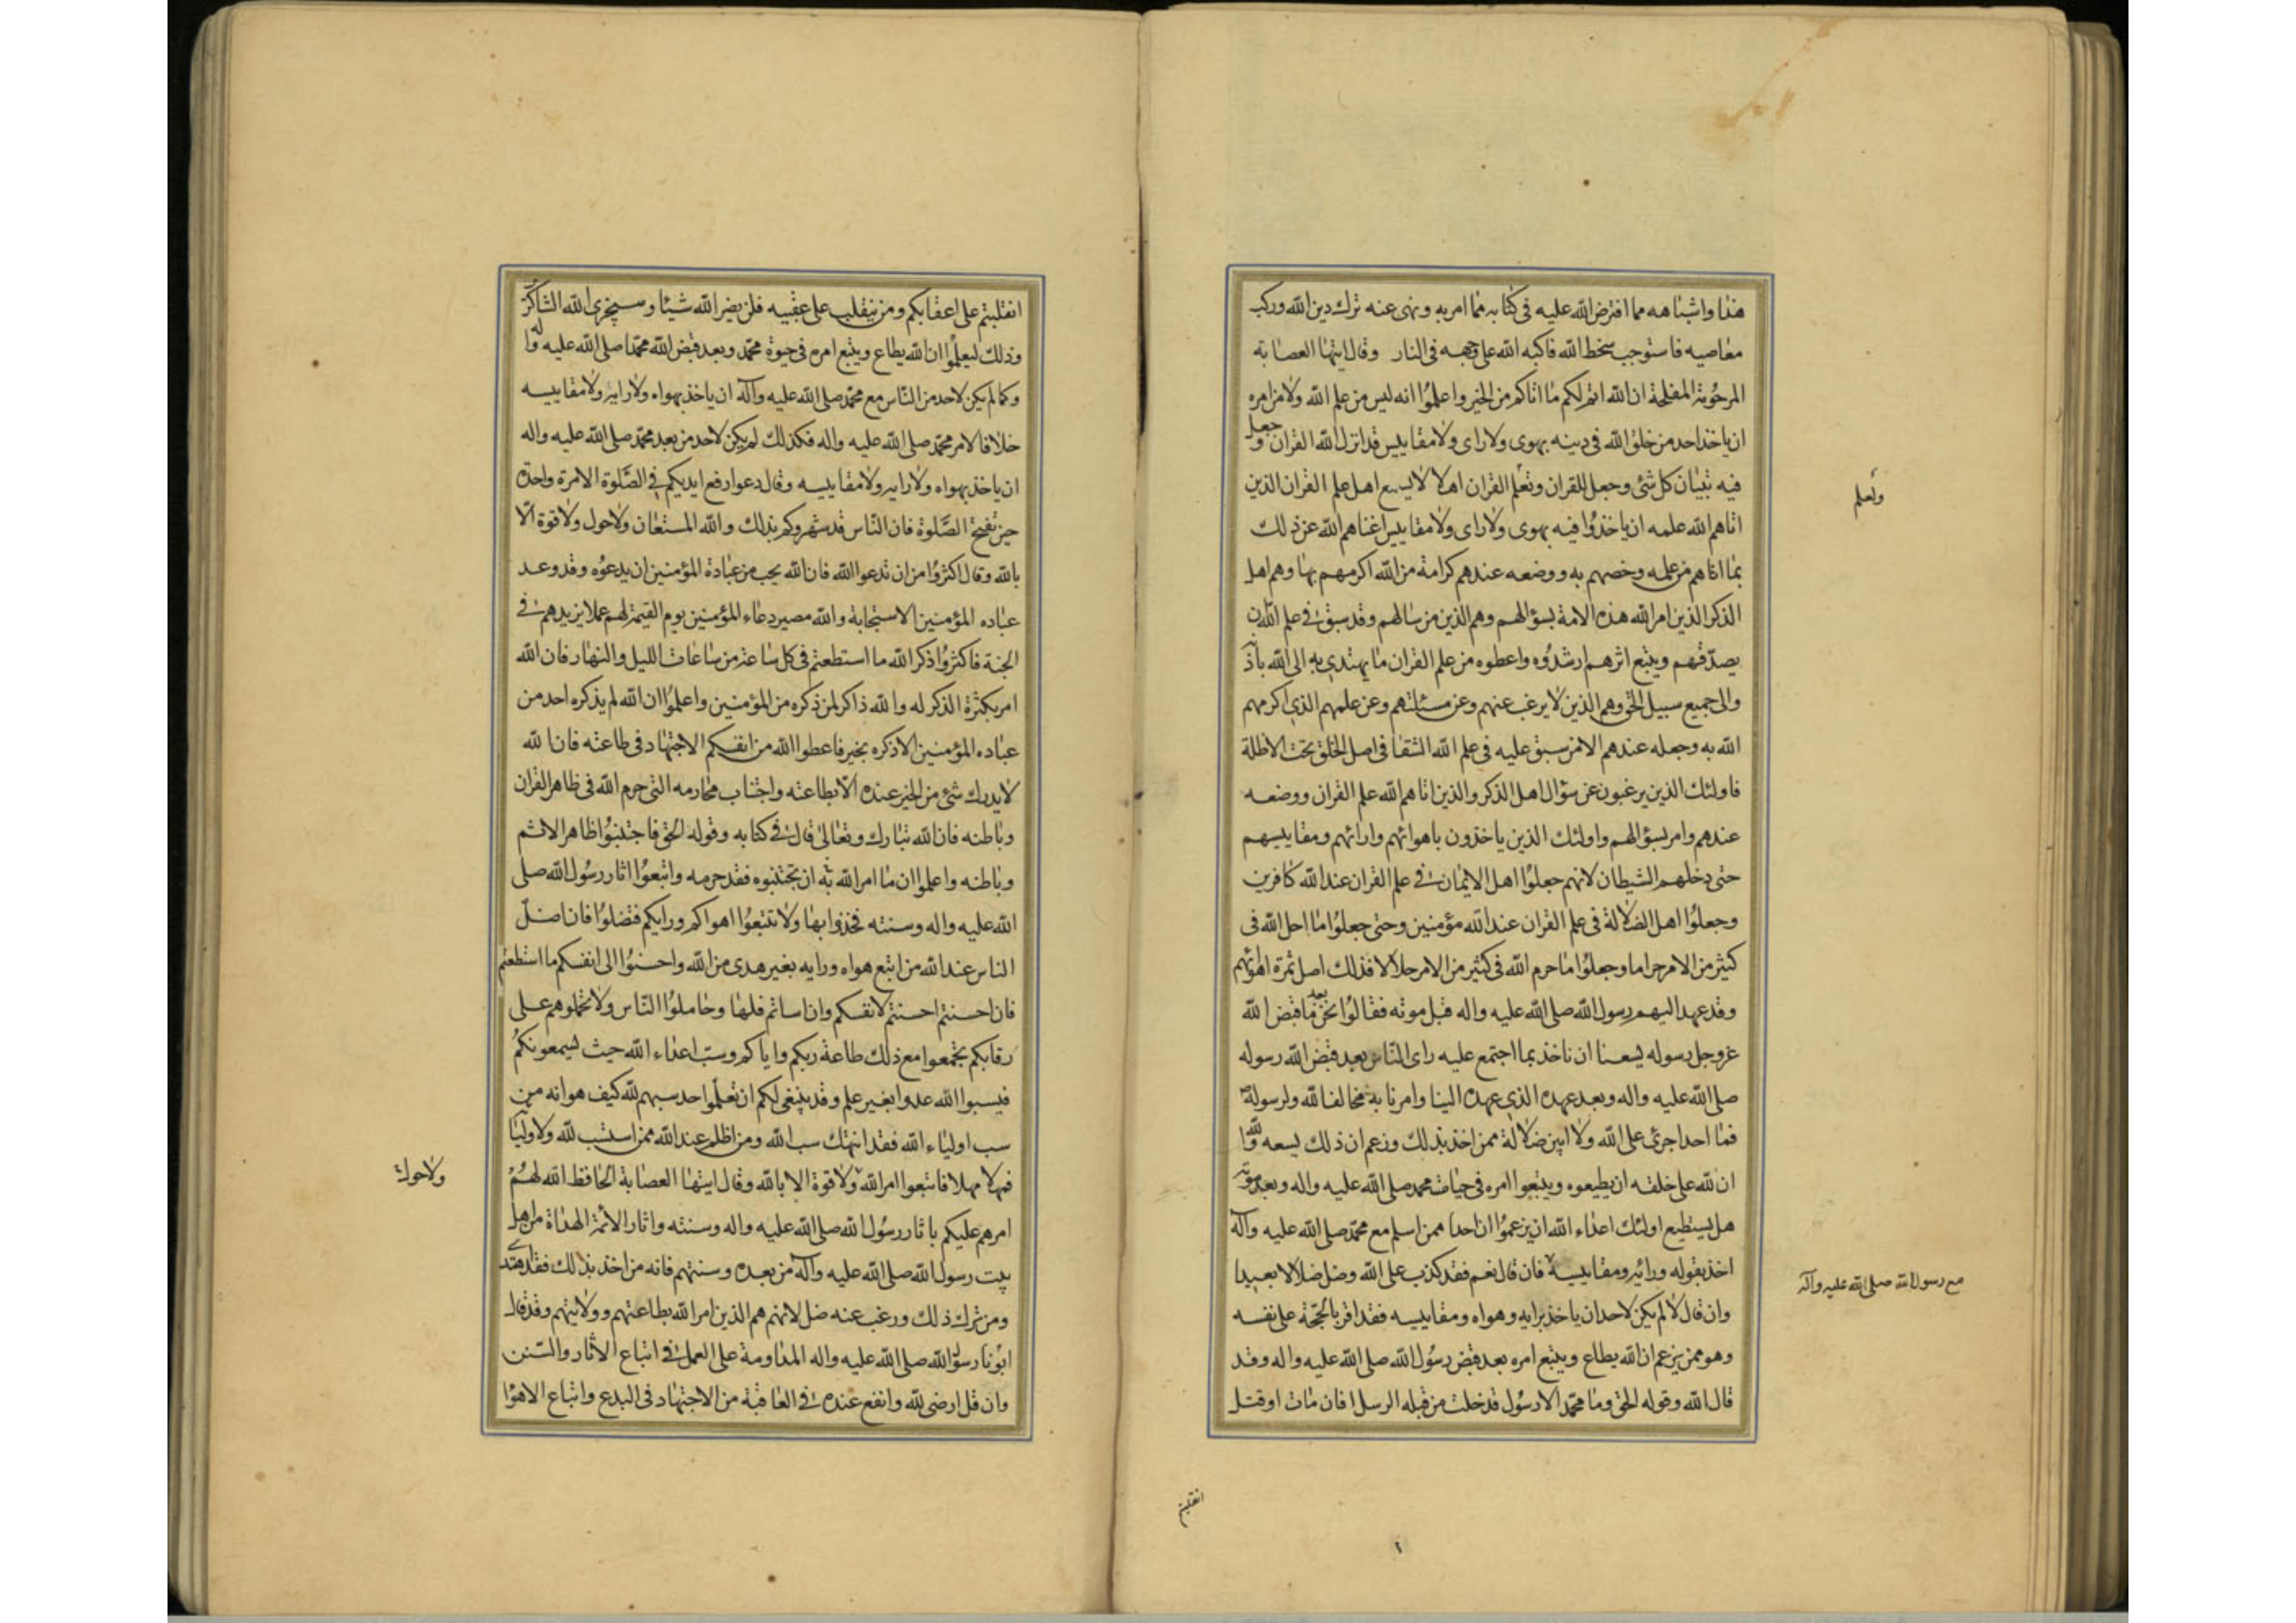 هذا واشباهه مما افترض الله عليه فى كتابه مما امر به ونهى عنه ترك دين الله وركب
معاصيه فاستوجب سخط الله فاكبه الله على وجهه فى النار وقال ايتها العصابة
المرحومة المفلحة ان الله اتم لكم ما اتاكم من الخير واعلموا انه ليس من علم الله ولا من امره
ان ياخذ احد من خلق الله فى دينه بهوى ولا راى ولا مقاييس قد انزل الله القران وجعل
فيه تبيان كل شئ وجعل للقران وتعلم القران اهلا لا يسع اهل علم القران الذين
وتعلم
اتاهم الله علمه ان ياخذوا فيه بهوى ولا راى ولا مقاييس اغناهم الله عن ذلك
بما اتاهم من علمه وخصهم به ووضعه عندهم كرامة من الله اكرمهم بها وهم اهل
الذكر الذين امر الله هذه الامة بسؤالهم وهم الذين من سالهم وقد سبق فى علم الله ان
يصدقهم ويتبع اثرهم ارشدوه واعطوه من علم القران ما يهتدى به الى الله باذنه
والى جميع سبيل الحق وهم الذين لا يرغب عنهم وعن مسئلتهم وعن علمهم الذى اكرمهم
الله به وجعله عندهم الا من سبق عليه فى علم الله الشقا فى اصل الخلق تحت الاظلة
فاولئك الذين يرغبون عن سؤال اهل الذكر والذين اتاهم الله علم القران ووضعه
عندهم وامر بسؤالهم واولئك الذين ياخذون باهوائهم وارائهم ومقاييسهم
حتى دخلهم الشيطان لانهم جعلوا اهل الايمان فى علم القران عند الله كافرين
وجعلوا اهل الضلالة فى علم القران عند الله مؤمنين وحتى جعلوا ما احل الله فى
كثير من الامر حراما وجعلوا ما حرم الله فى كثير من الامر حلالا فذلك اصل ثمرة اهوائهم
وقد عهد اليهم رسول الله صلى الله عليه واله قبل موته فقالوا نحن بعد ما قبض الله
عز وجل رسوله يسعنا ان ناخذ بما اجتمع عليه راى الناس بعد قبض الله رسوله
صلى الله عليه واله وبعد عهده الذى عهده الينا وامرنا به مخالفا لله ولرسوله
فما احد اجرئ على الله ولا ابين ضلالة ممن اخذ بذلك وزعم ان ذلك يسعه والله
ان لله على خلقه ان يطيعوه ويتبعوا امره فى حيات محمد صلى الله عليه واله وبعد موته
هل يستطيع اولئك اعداء الله ان يزعموا ان احدا ممن اسلم مع محمد صلى الله عليه وآله
اخذ بقوله ورائه ومقاييسه فان قال نعم فقد كذب على الله وضل ضلالا بعيدا
مع رسول الله صلى الله عليه وآله
وان قال لا لم يكن لاحد ان ياخذ برايه وهواه ومقاييسه فقد اقر بالحجة على نفسه
وهو ممن يزعم ان الله يطاع ويتبع امره بعد قبض رسول الله صلى الله عليه واله وقد
قال الله وقوله الحق وما محمد الا رسول قد خلت من قبله الرسل افان مات او قتل
انقلبتم
٢
انقلبتم على اعقابكم ومن ينقلب على عقبيه فلن يضر الله شيئا وسيجزى الله الشاكرين
وذلك ليعلموا ان الله يطاع ويتبع امره فى حيوة محمد وبعد قبض الله محمدا صلى الله عليه وآله
وكما لم يكن لاحد من الناس مع محمد صلى الله عليه وآله ان ياخذ بهواه ولا رايه ولا مقاييسه
خلافا لامر محمد صلى الله عليه واله فكذلك لم يكن لاحد من بعد محمد صلى الله عليه واله
ان ياخذ بهواه ولا رايه ولا مقاييسه وقال دعوا رفع ايديكم فى الصلوة الا مرة واحدة
حين تفتح الصلوة فان الناس قد شهروكم بذلك والله المستعان ولا حول ولا قوة الا
بالله وقال اكثروا من ان تدعوا الله فان الله يحب من عبادة المؤمنين ان يدعوه وقد وعد
عباده المؤمنين الاستجابة والله مصير دعاء المؤمنين يوم القيمة لهم عملا يزيدهم فى
الجنة فاكثروا ذكر الله ما استطعتم فى كل ساعة من ساعات الليل والنهار فان الله
امر بكثرة الذكر له والله ذاكر لمن ذكره من المؤمنين واعلموا ان الله لم يذكره احد من
عباده المؤمنين الا ذكره بخير فاعطوا الله من انفسكم الاجتهاد فى طاعته فان الله
لا يدرك شئ من الخير عنده الا بطاعته واجتناب محارمه التى حرم الله فى ظاهر القران
وباطنه فان الله تبارك وتعالى قال فى كتابه وقوله الحق فاجتنبوا ظاهر الاثم
وباطنه واعلموا ان ما امر الله به ان تجتنبوه فقد حرمه واتبعوا اثار رسول الله صلى
الله عليه واله وسنته فخذوا بها ولا تتبعوا اهواكم ورايكم فتضلوا فان اضل
الناس عند الله من اتبع هواه ورايه بغير هدى من الله واحسنوا الى انفسكم ما استطعتم
فان احسنتم احسنتم لانفسكم وان اساتم فلها وجاملوا الناس ولا تحملوهم على
رقابكم تجمعوا مع ذلك طاعة ربكم واياكم وسب اعداء الله حيث يسمعونكم
فيسبوا الله عدوا بغير علم وقد ينبغى لكم ان تعلموا حد سبهم لله كيف هو انه من
سب اولياء الله فقد انتهك سب الله ومن اظلم عند الله ممن استسب لله ولاوليا
فمهلا مهلا فاتبعوا امر الله ولا قوة الا بالله وقال ايتها العصابة الحافظ الله لهم
ولا حول
امرهم عليكم باثار رسول الله صلى الله عليه واله وسنته واثار الائمة الهداة من اهل
بيت رسول الله صلى الله عليه وآله من بعده وسنتهم فانه من اخذ بذلك فقد اهتدى
ومن ترك ذلك ورغب عنه ضل لانهم هم الذين امر الله بطاعتهم وولايتهم وقد قال
ابونا رسول الله صلى الله عليه واله المداومة على العمل فى اتباع الاثار والسنن
وان قل ارضى لله وانفع عنده فى العاقبة من الاجتهاد فى البدع واتباع الاهوا